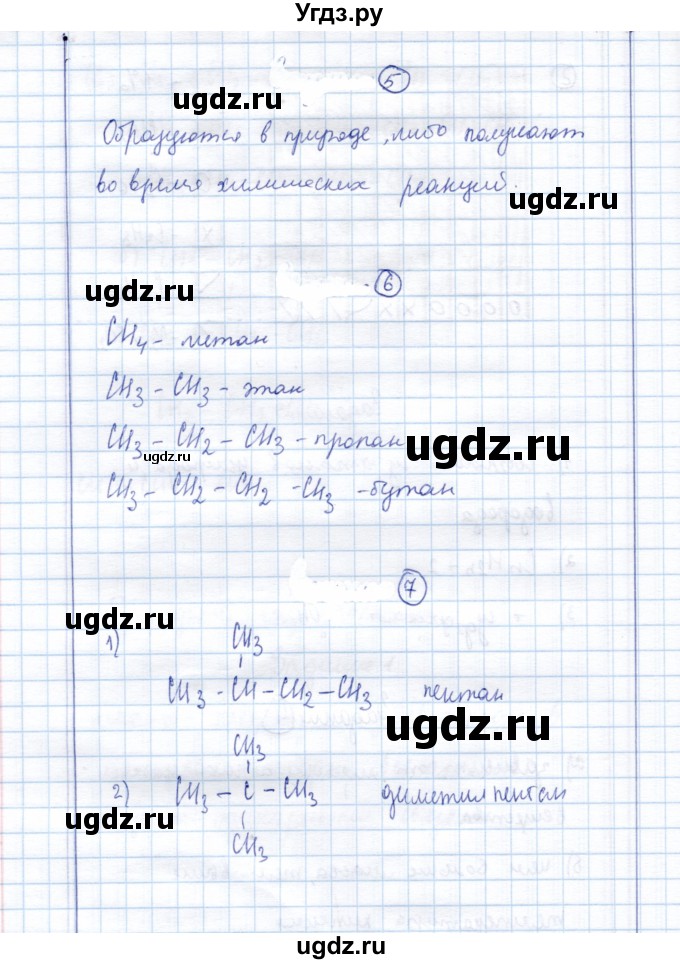 Угдз.ру
5
ugdz.ru
Образуются в природе, либо получают
во время химических реакций.
ugdz.ru
6
ugdz.ru
CH4 - метан
CH3 - CH3 - этан
CH3 - CH2 - CH3 - пропан
ugdz.ru
ugdz.ru
CH3 - CH2 - CH2 - CH3 - бутан
7
ugdz.ru
1)
CH3
CH3 - CH - CH2 - CH3 пентан
ugdz.ru
CH3
2) CH3 - C - CH3 диметилпентан
ugdz.ru
CH3
ugdz.ru